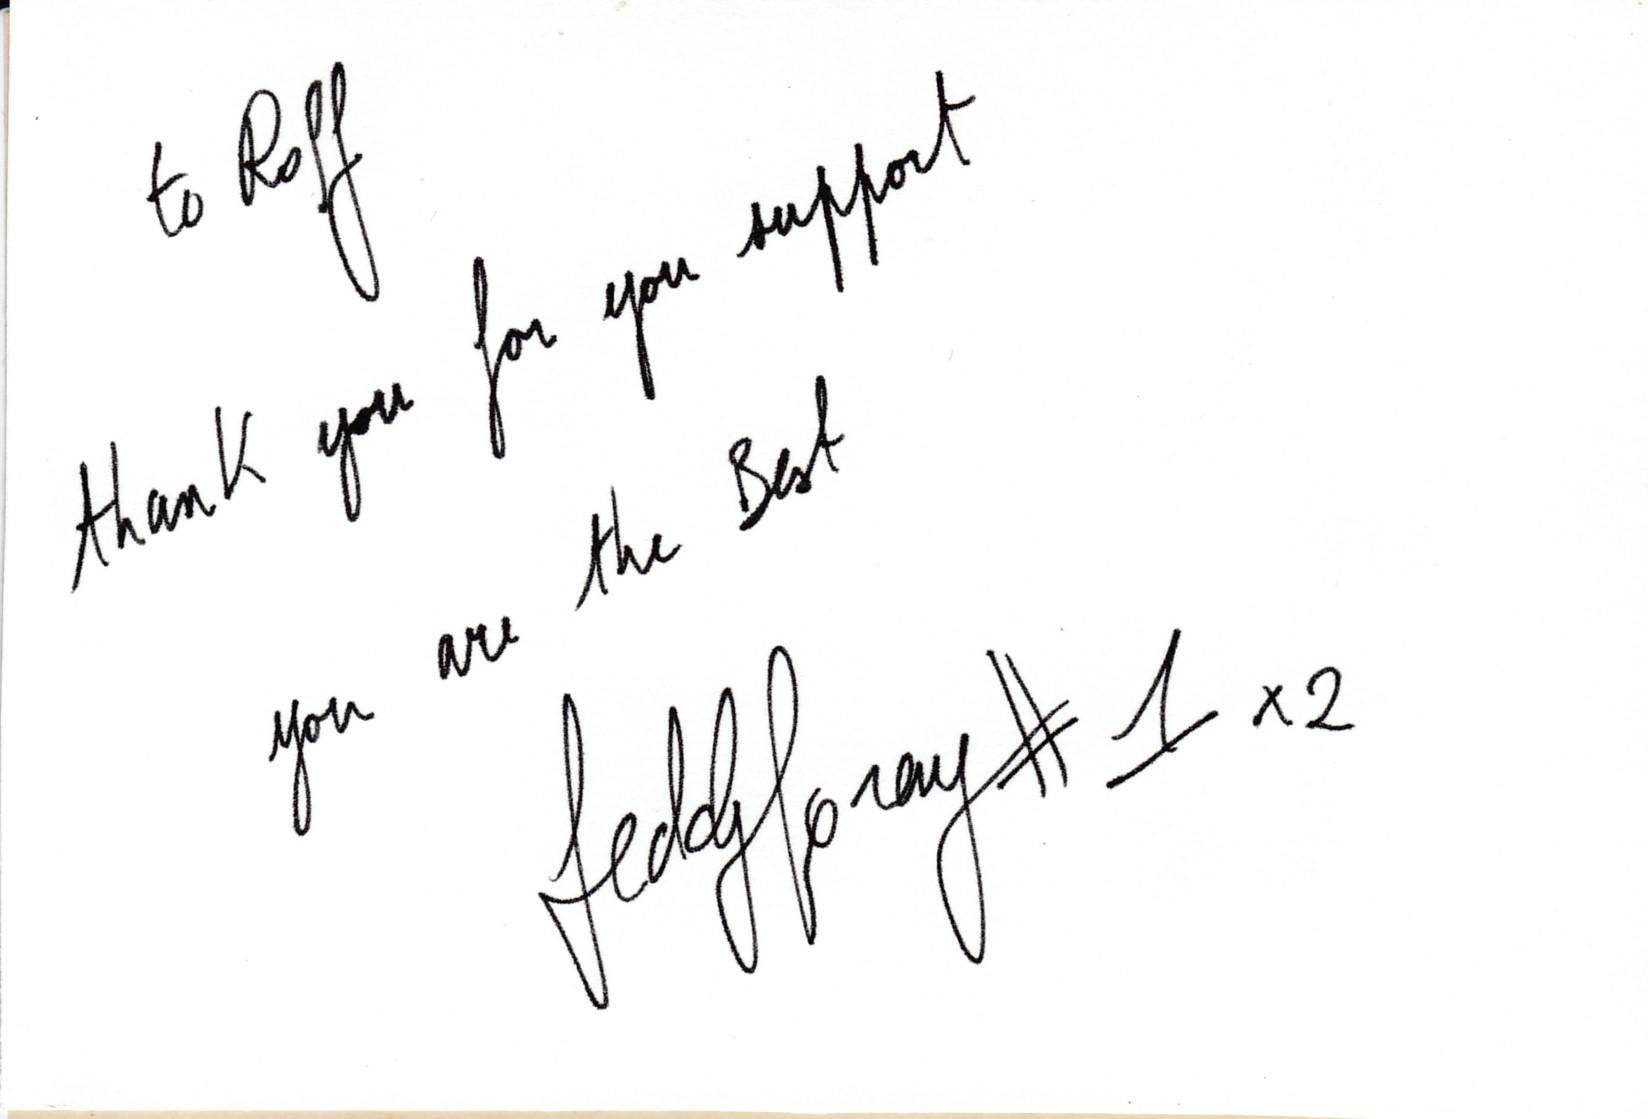 to Roff
thank you for you support
you are the Best
Teddy Foray # 1 x2